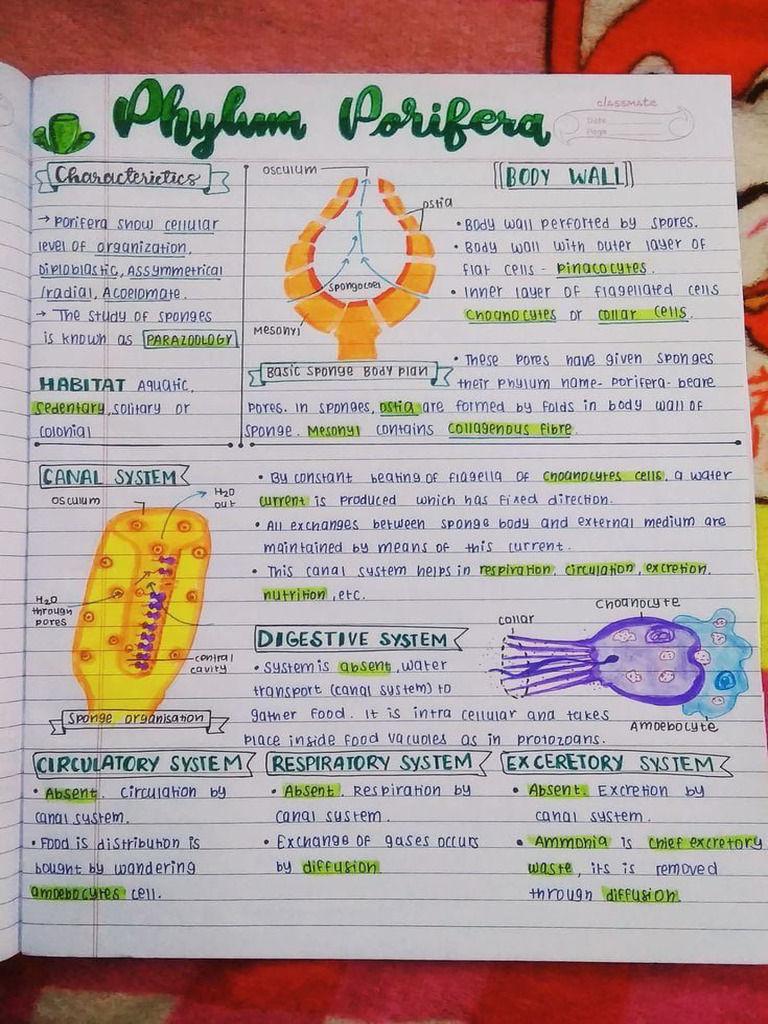 Phylum Porifera
classmate
Date
Page
Characteristics
→ Porifera show cellular
level of organization,
Diploblastic, Assymmetrical
/radial, Acoelomate.
→ The study of sponges
is known as PARAZOOLOGY
HABITAT Aquatic,
sedentary, solitary or
colonial
osculum
ostia
spongocoel
Mesohyl
Basic sponge Body plan
BODY WALL
• Body wall perforted by spores.
• Body wall with outer layer of
flat cells - pinacocytes.
• Inner layer of flagellated cells
choanocytes or collar cells.
• These pores have given sponges
their phylum name- porifera- beare
pores. In sponges, ostia are formed by folds in body wall of
sponge. Mesohyl contains collagenous fibre.
CANAL SYSTEM
osculum
H2O
out
H2O
through
pores
central
cavity
Sponge organisation
• By constant beating of flagella of choanocytes cells, a water
current is produced which has fixed direction.
• All exchanges between sponge body and external medium are
maintained by means of this current.
• This canal system helps in respiration, circulation, excretion,
nutrition, etc.
DIGESTIVE SYSTEM
• System is absent, water
transport (canal system) to
gather food. It is intra cellular and takes
place inside food vacuoles as in protozoans.
collar
Choanocyte
Amoebocyte
CIRCULATORY SYSTEM
• Absent. circulation by
canal system.
• Food is distribution is
bought by wandering
amoebocytes cell.
RESPIRATORY SYSTEM
• Absent. Respiration by
canal system.
• Exchange of gases occurs
by diffusion
EXCERETORY SYSTEM
• Absent. Excretion by
canal system.
• Ammonia is chief excretory
waste, its is removed
through diffusion.